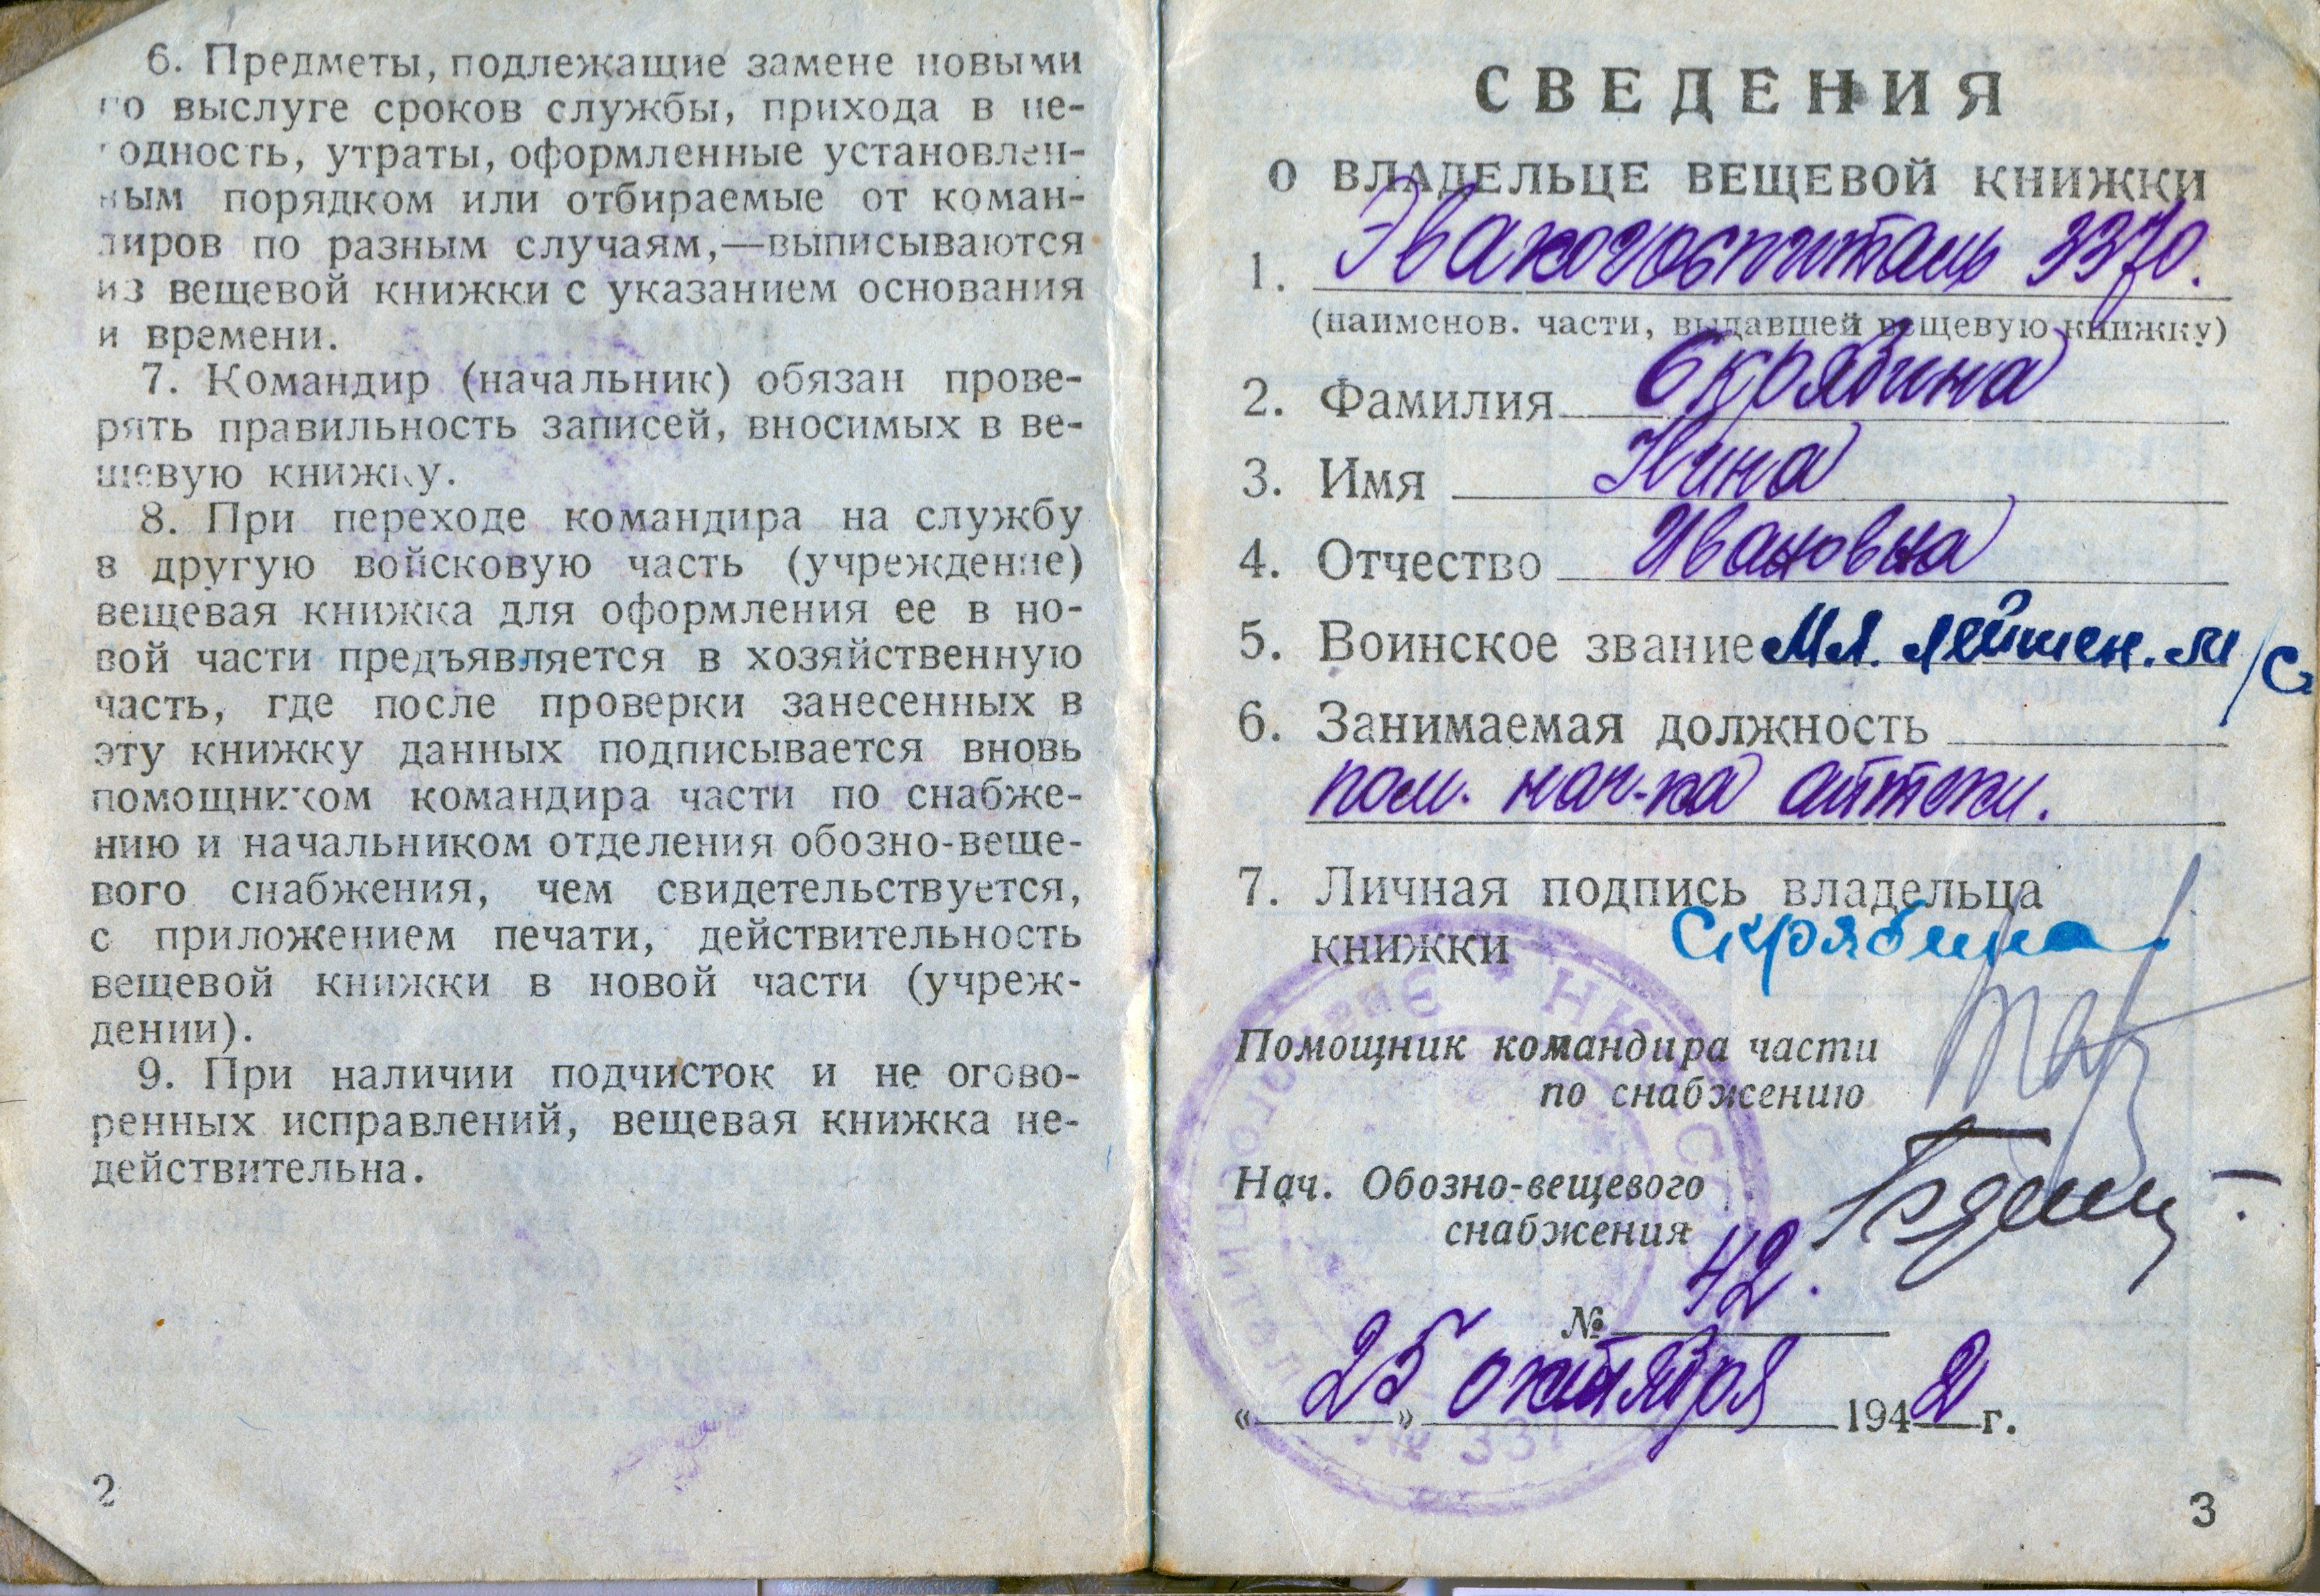 6. Предметы, подлежащие замене новыми
по выслуге сроков службы, прихода в не-
годность, утраты, оформленные установлен-
ным порядком или отбираемые от коман-
диров по разным случаям,—выписываются
из вещевой книжки с указанием основания
и времени.
7. Командир (начальник) обязан прове-
рять правильность записей, вносимых в ве-
щевую книжку.
8. При переходе командира на службу
в другую войсковую часть (учреждение)
вещевая книжка для оформления ее в но-
вой части предъявляется в хозяйственную
часть, где после проверки занесенных в
эту книжку данных подписывается вновь
помощником командира части по снабже-
нию и начальником отделения обозно-веще-
вого снабжения, чем свидетельствуется,
с приложением печати, действительность
вещевой книжки в новой части (учреж-
дении).
9. При наличии подчисток и не огово-
ренных исправлений, вещевая книжка не-
действительна.
2
СВЕДЕНИЯ
О ВЛАДЕЛЬЦЕ ВЕЩЕВОЙ КНИЖКИ
1. Эвакогоспиталь 3370.
(наименов. части, выдавшей вещевую книжку)
2. Фамилия Скрябина
3. Имя Нина
4. Отчество Ивановна
5. Воинское звание Мл. лейтен. м/с
6. Занимаемая должность
пом. нач-ка аптеки.
7. Личная подпись владельца
книжки Скрябина
Помощник командира части
по снабжению
Нач. Обозно-вещевого
снабжения
№ 42.
«25» октября 1942 г.
3